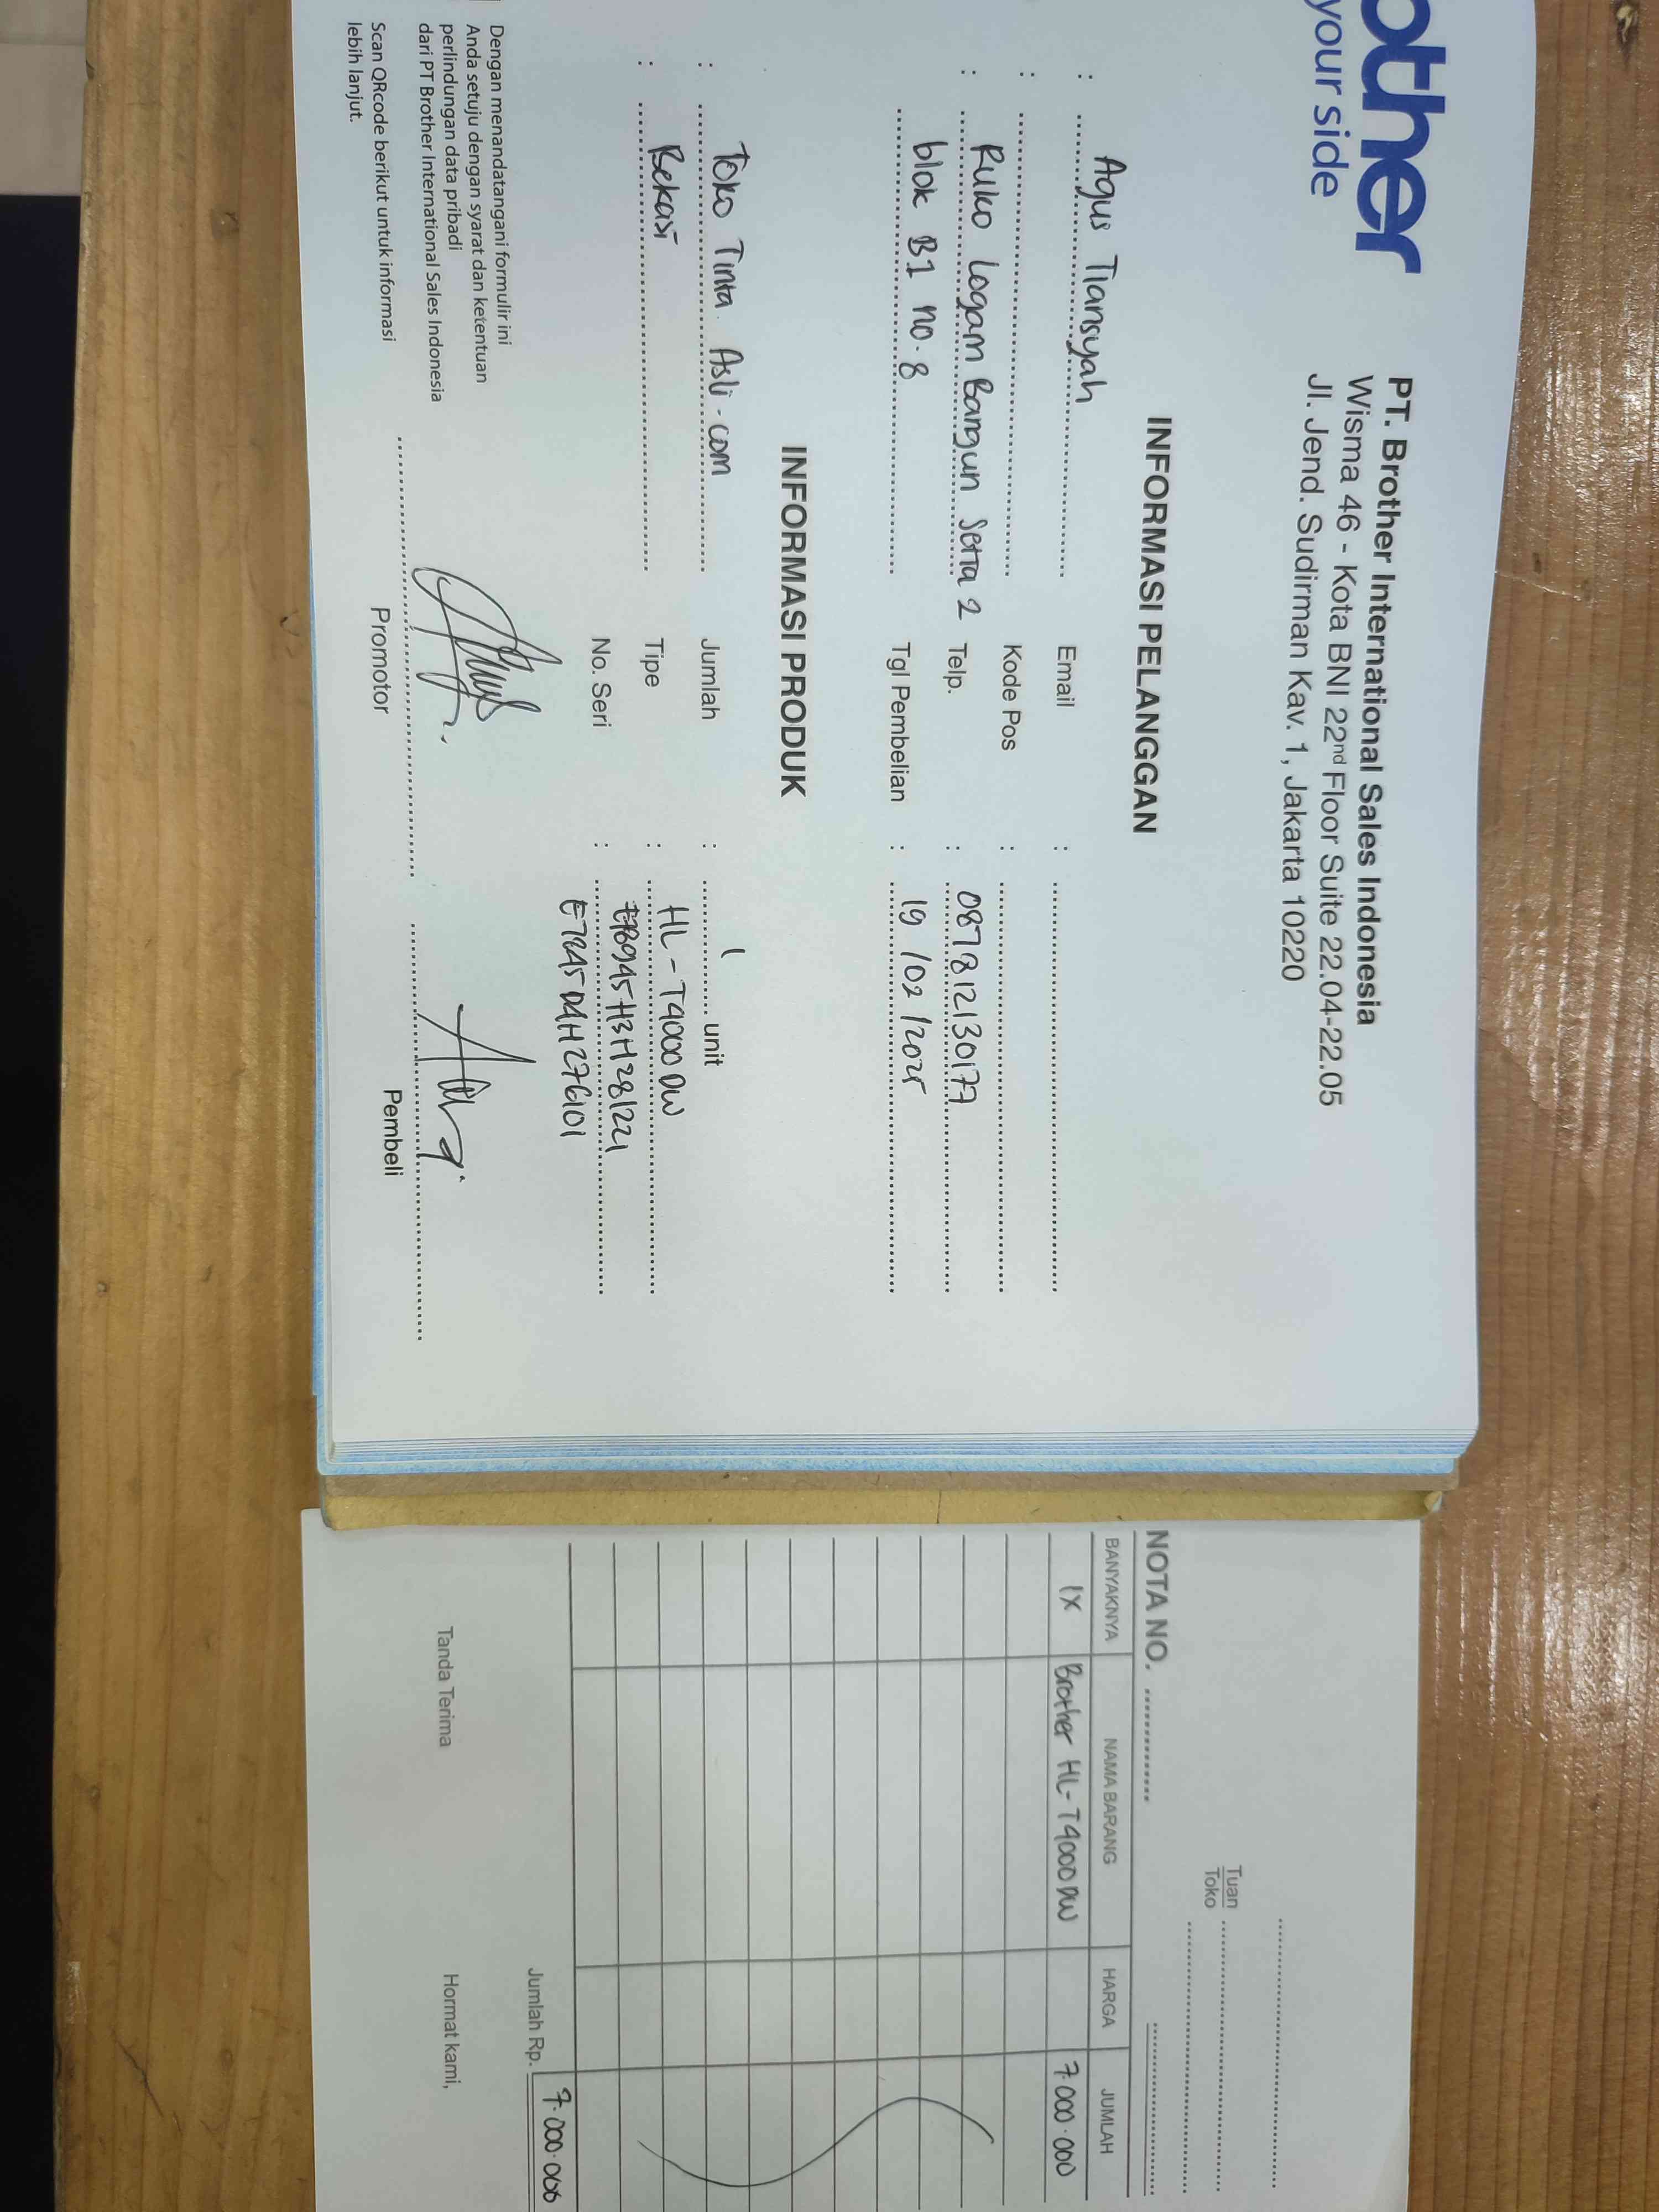 other
your side
PT. Brother International Sales Indonesia
Wisma 46 - Kota BNI 22nd Floor Suite 22.04-22.05
Jl. Jend. Sudirman Kav. 1, Jakarta 10220
INFORMASI PELANGGAN
: Agus Tiansyah
Email :
:
Kode Pos :
: Ruko Logam Bangun Setia 2
Telp. : 087812130177
blok B1 no. 8
Tgl Pembelian : 19 /02 /2025
INFORMASI PRODUK
: Toko Tinta Asli.com
Jumlah : 1 unit
: Bekasi
Tipe : HL-T4000DW
No. Seri :
Dengan menandatangani formulir ini
Anda setuju dengan syarat dan ketentuan
perlindungan data pribadi
dari PT Brother International Sales Indonesia
Scan QRcode berikut untuk informasi
lebih lanjut.
Promotor
Pembeli
Tuan
Toko
NOTA NO.
BANYAKNYA NAMA BARANG HARGA JUMLAH
1X Brother HL-T4000DW 7.000.000
Jumlah Rp. 7.000.000
Tanda Terima Hormat kami,